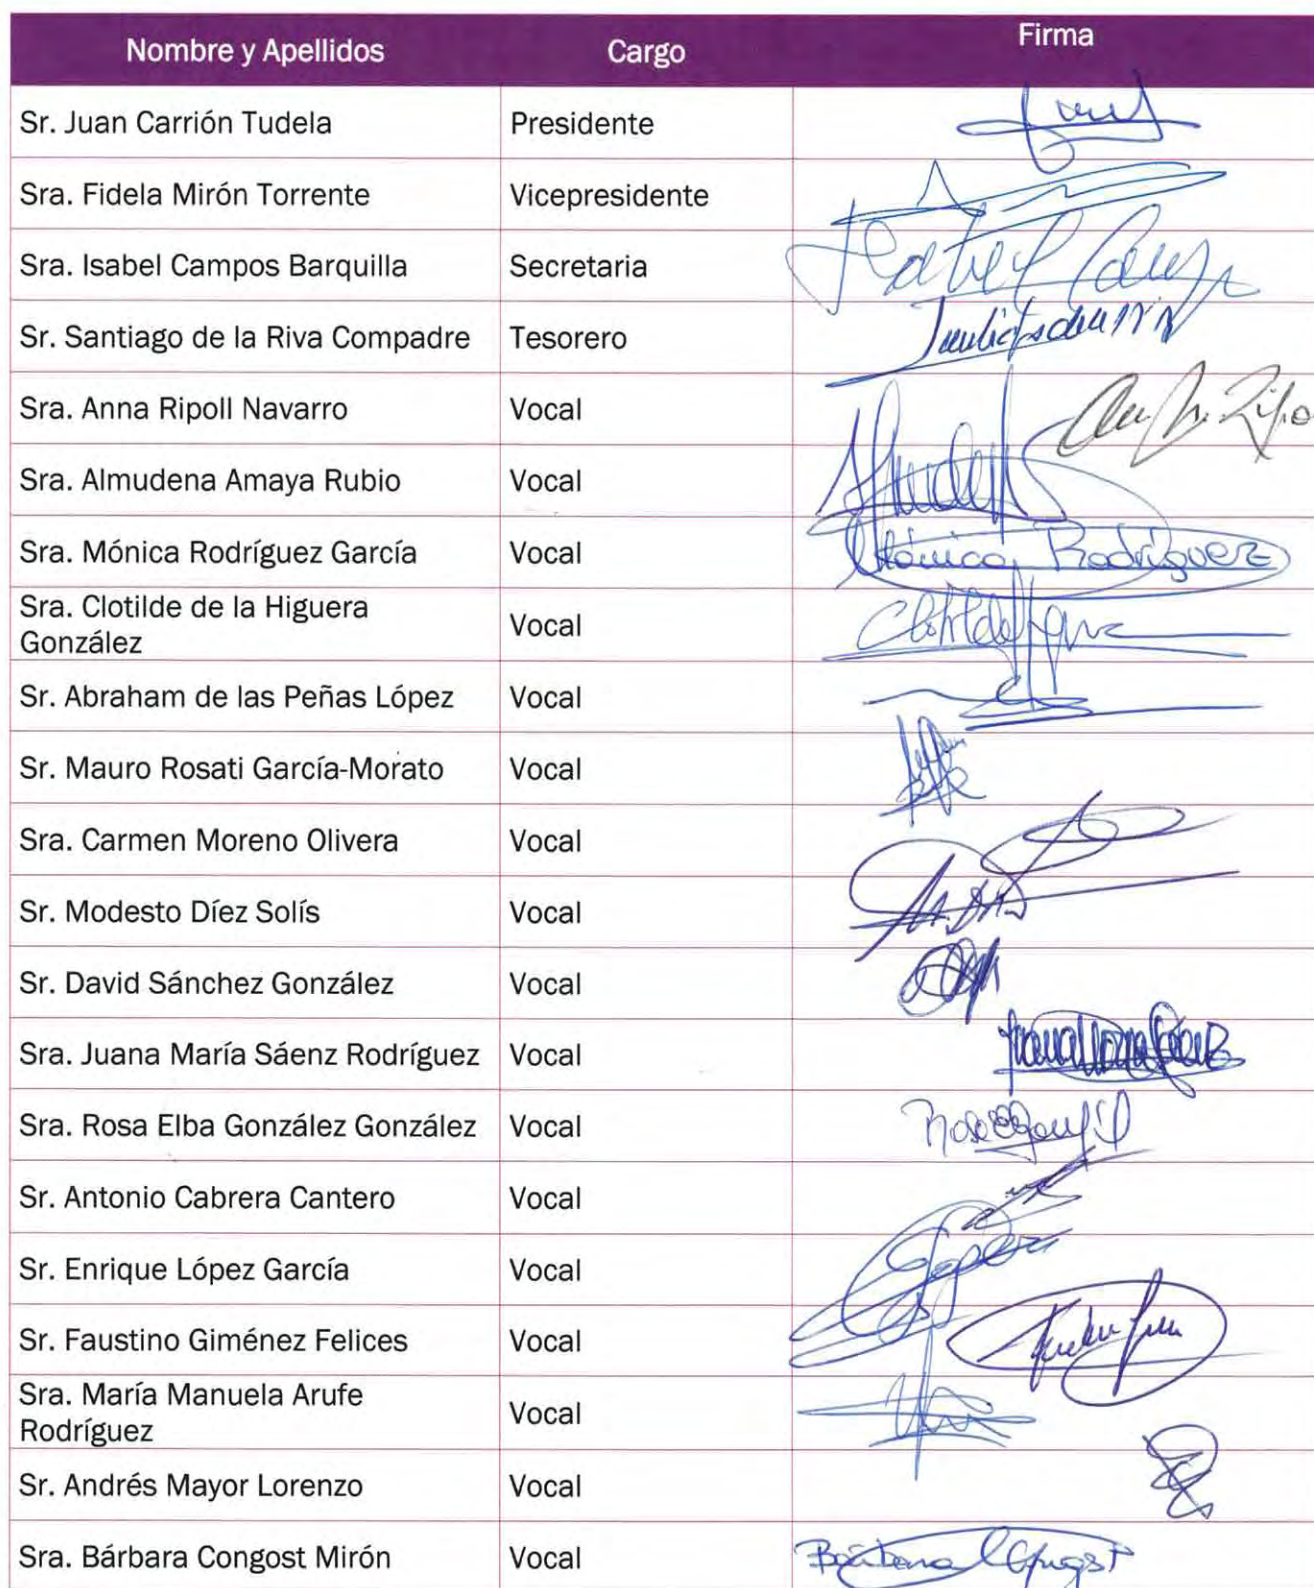 Nombre y Apellidos Cargo Firma
Sr. Juan Carrión Tudela Presidente
Sra. Fidela Mirón Torrente Vicepresidente
Sra. Isabel Campos Barquilla Secretaria
Sr. Santiago de la Riva Compadre Tesorero
Sra. Anna Ripoll Navarro Vocal
Sra. Almudena Amaya Rubio Vocal
Sra. Mónica Rodríguez García Vocal Mónica Rodríguez
Sra. Clotilde de la Higuera
González Vocal
Sr. Abraham de las Peñas López Vocal
Sr. Mauro Rosati García-Morato Vocal
Sra. Carmen Moreno Olivera Vocal
Sr. Modesto Díez Solís Vocal
Sr. David Sánchez González Vocal
Sra. Juana María Sáenz Rodríguez Vocal
Sra. Rosa Elba González González Vocal
Sr. Antonio Cabrera Cantero Vocal
Sr. Enrique López García Vocal
Sr. Faustino Giménez Felices Vocal
Sra. María Manuela Arufe
Rodríguez Vocal
Sr. Andrés Mayor Lorenzo Vocal
Sra. Bárbara Congost Mirón Vocal Bárbara Congost